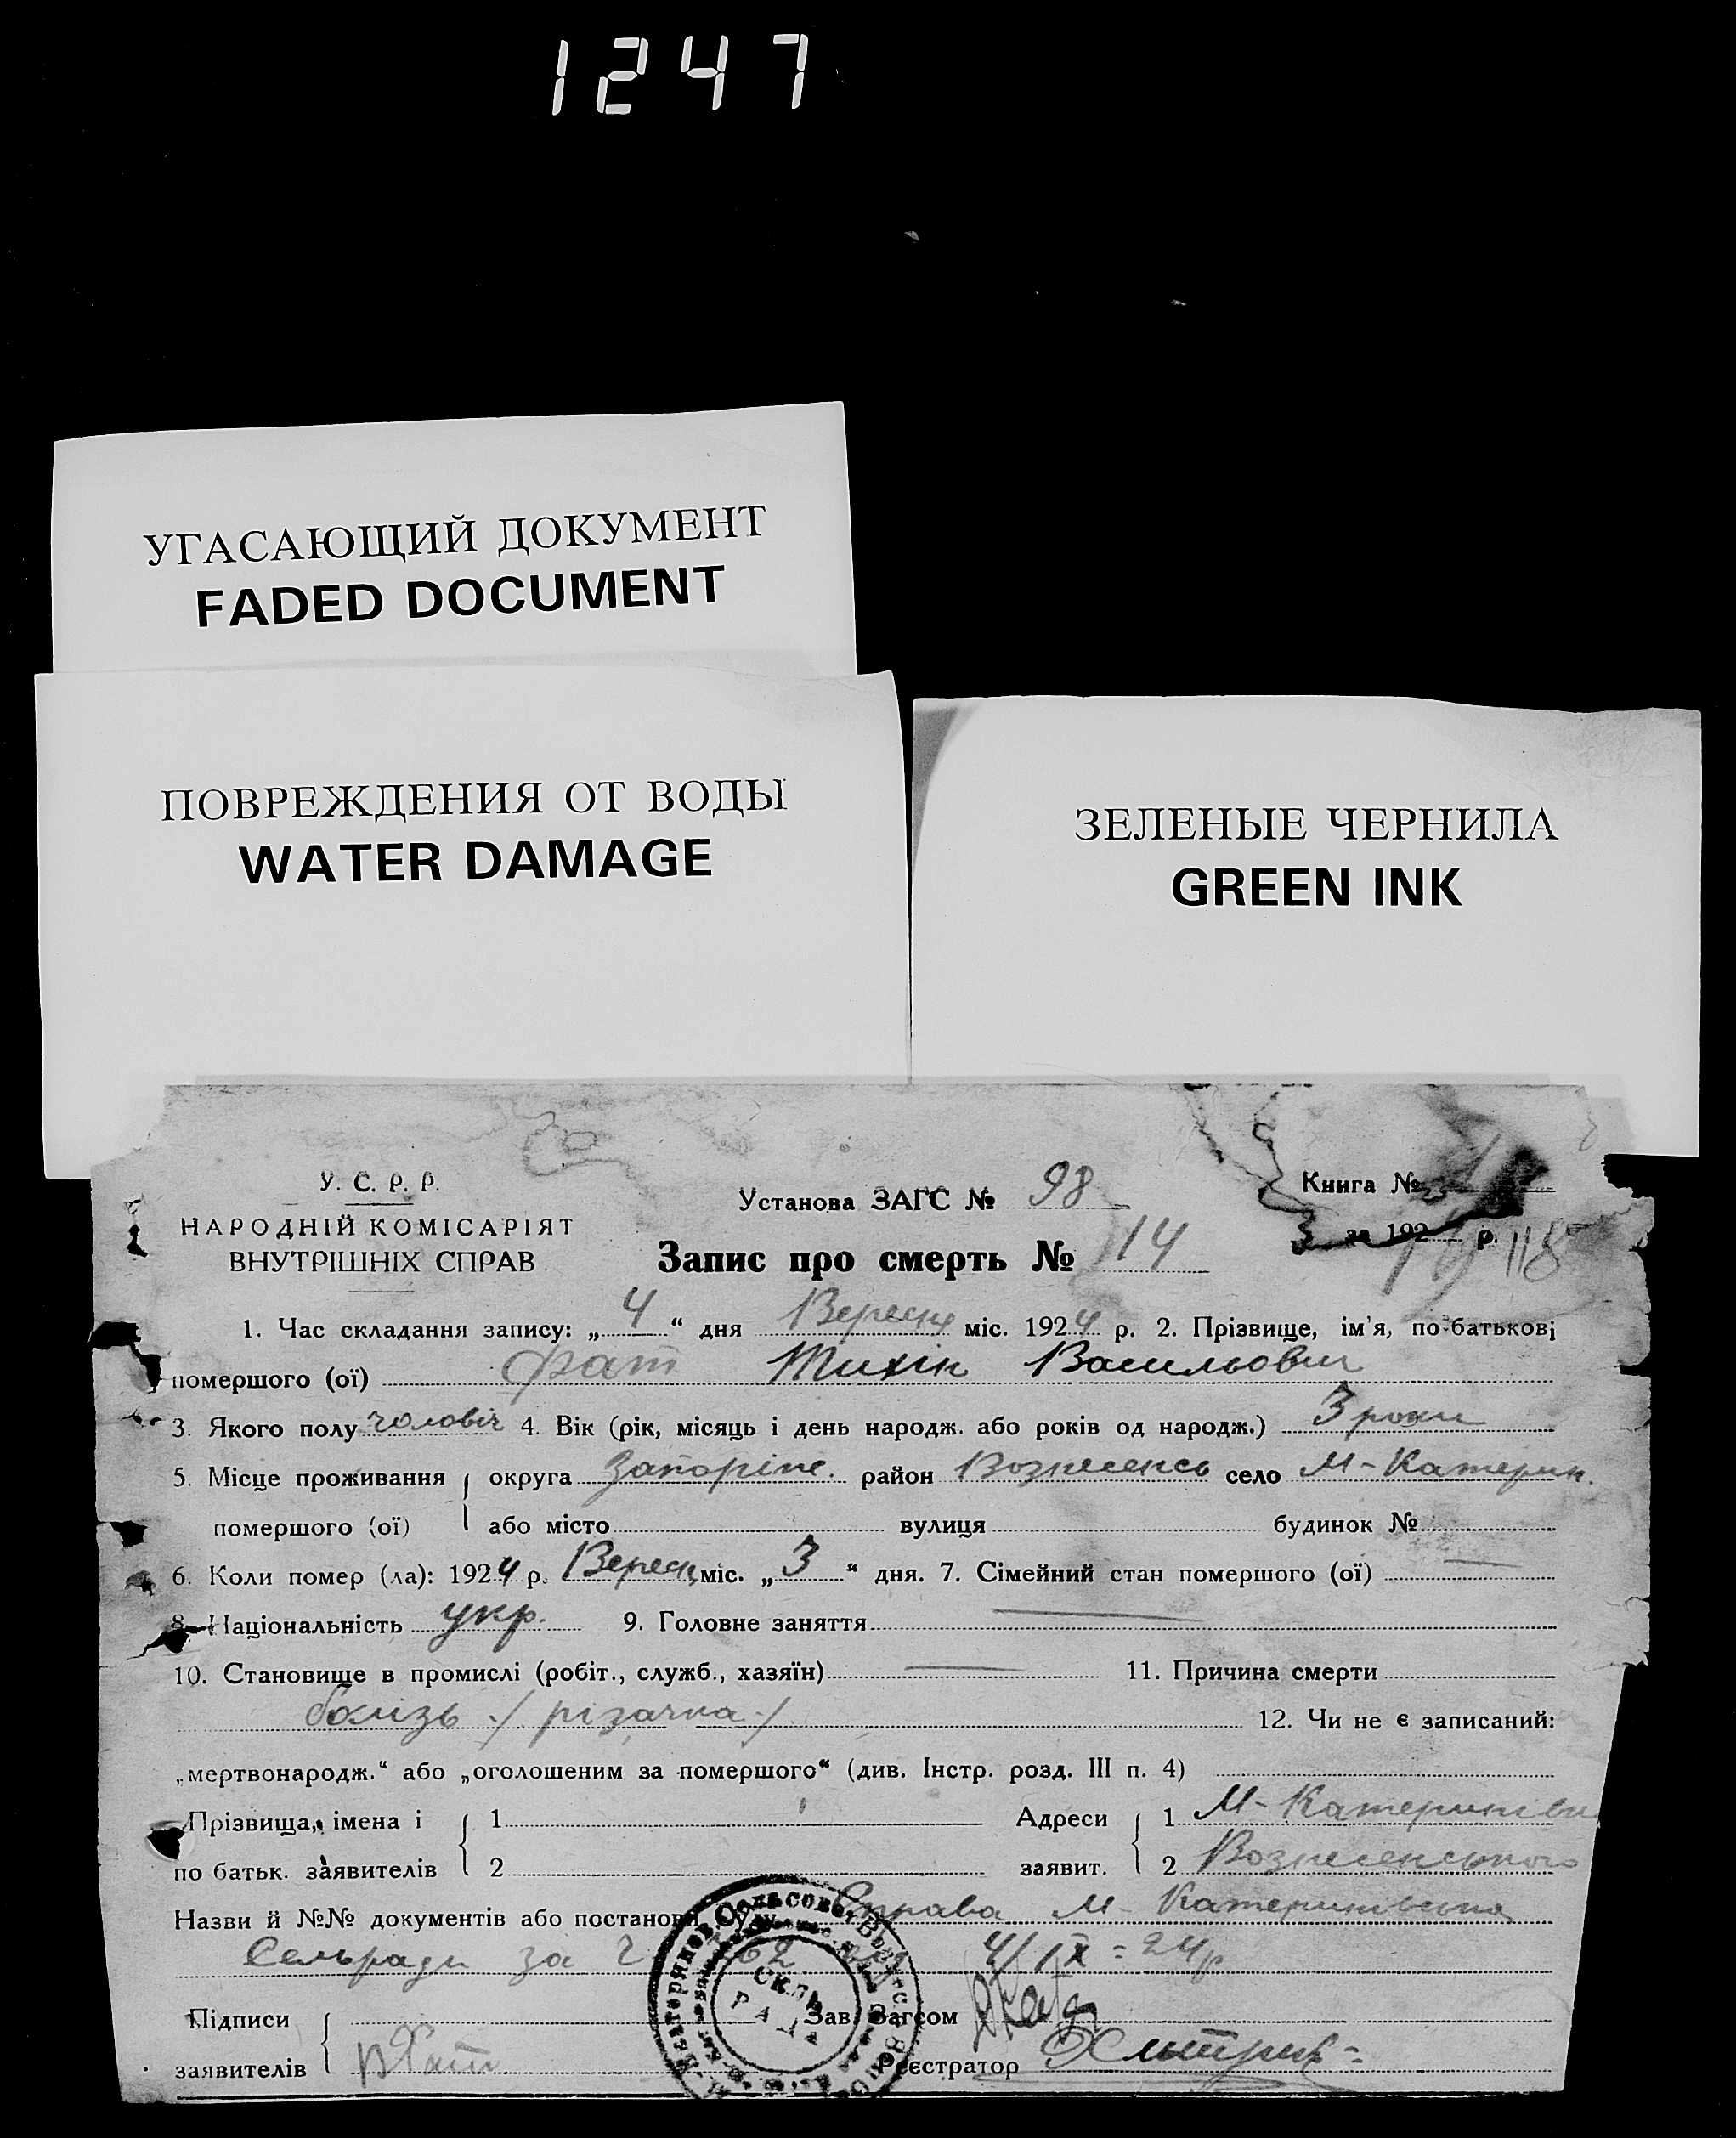 1247
УГАСАЮЩИЙ ДОКУМЕНТ
FADED DOCUMENT
ПОВРЕЖДЕНИЯ ОТ ВОДЫ
WATER DAMAGE
ЗЕЛЕНЫЕ ЧЕРНИЛА
GREEN INK
У. С. Р. Р.
НАРОДНІЙ КОМІСАРІЯТ
ВНУТРІШНІХ СПРАВ
Установа ЗАГС № 98
Запис про смерть № 14
Книга №
за 192 р. 118
1. Час складання запису: „ 4 “ дня Вересня міс. 1924 р. 2. Прізвище, ім'я, по-батькові
помершого (ої) Фат Тихін Васильович
3. Якого полу чоловіч 4. Вік (рік, місяць і день народж. або років од народж.) 3 роки
5. Місце проживання округа Запоріже. район Вознесенсь село М-Катерин.
помершого (ої) або місто вулиця будинок №
6. Коли помер (ла): 1924 р. Вересн міс. „ 3 “ дня. 7. Сімейний стан помершого (ої)
8. Національність укр. 9. Головне заняття
10. Становище в промислі (робіт., служб., хазяїн) 11. Причина смерти
болізь / різачка / 12. Чи не є записаний:
„мертвонародж.“ або „оголошеним за помершого“ (див. Інстр. розд. III п. 4)
Прізвища, імена і 1 Адреси 1 М-Катеринівки
по батьк. заявителів 2 заявит. 2 Вознесенського
Назви й №№ документів або постанови суду Справа М-Катеринівська
Сельради за Ч 4/IX-24р
Підписи Зав. Загсом
заявителів Фат Реєстратор